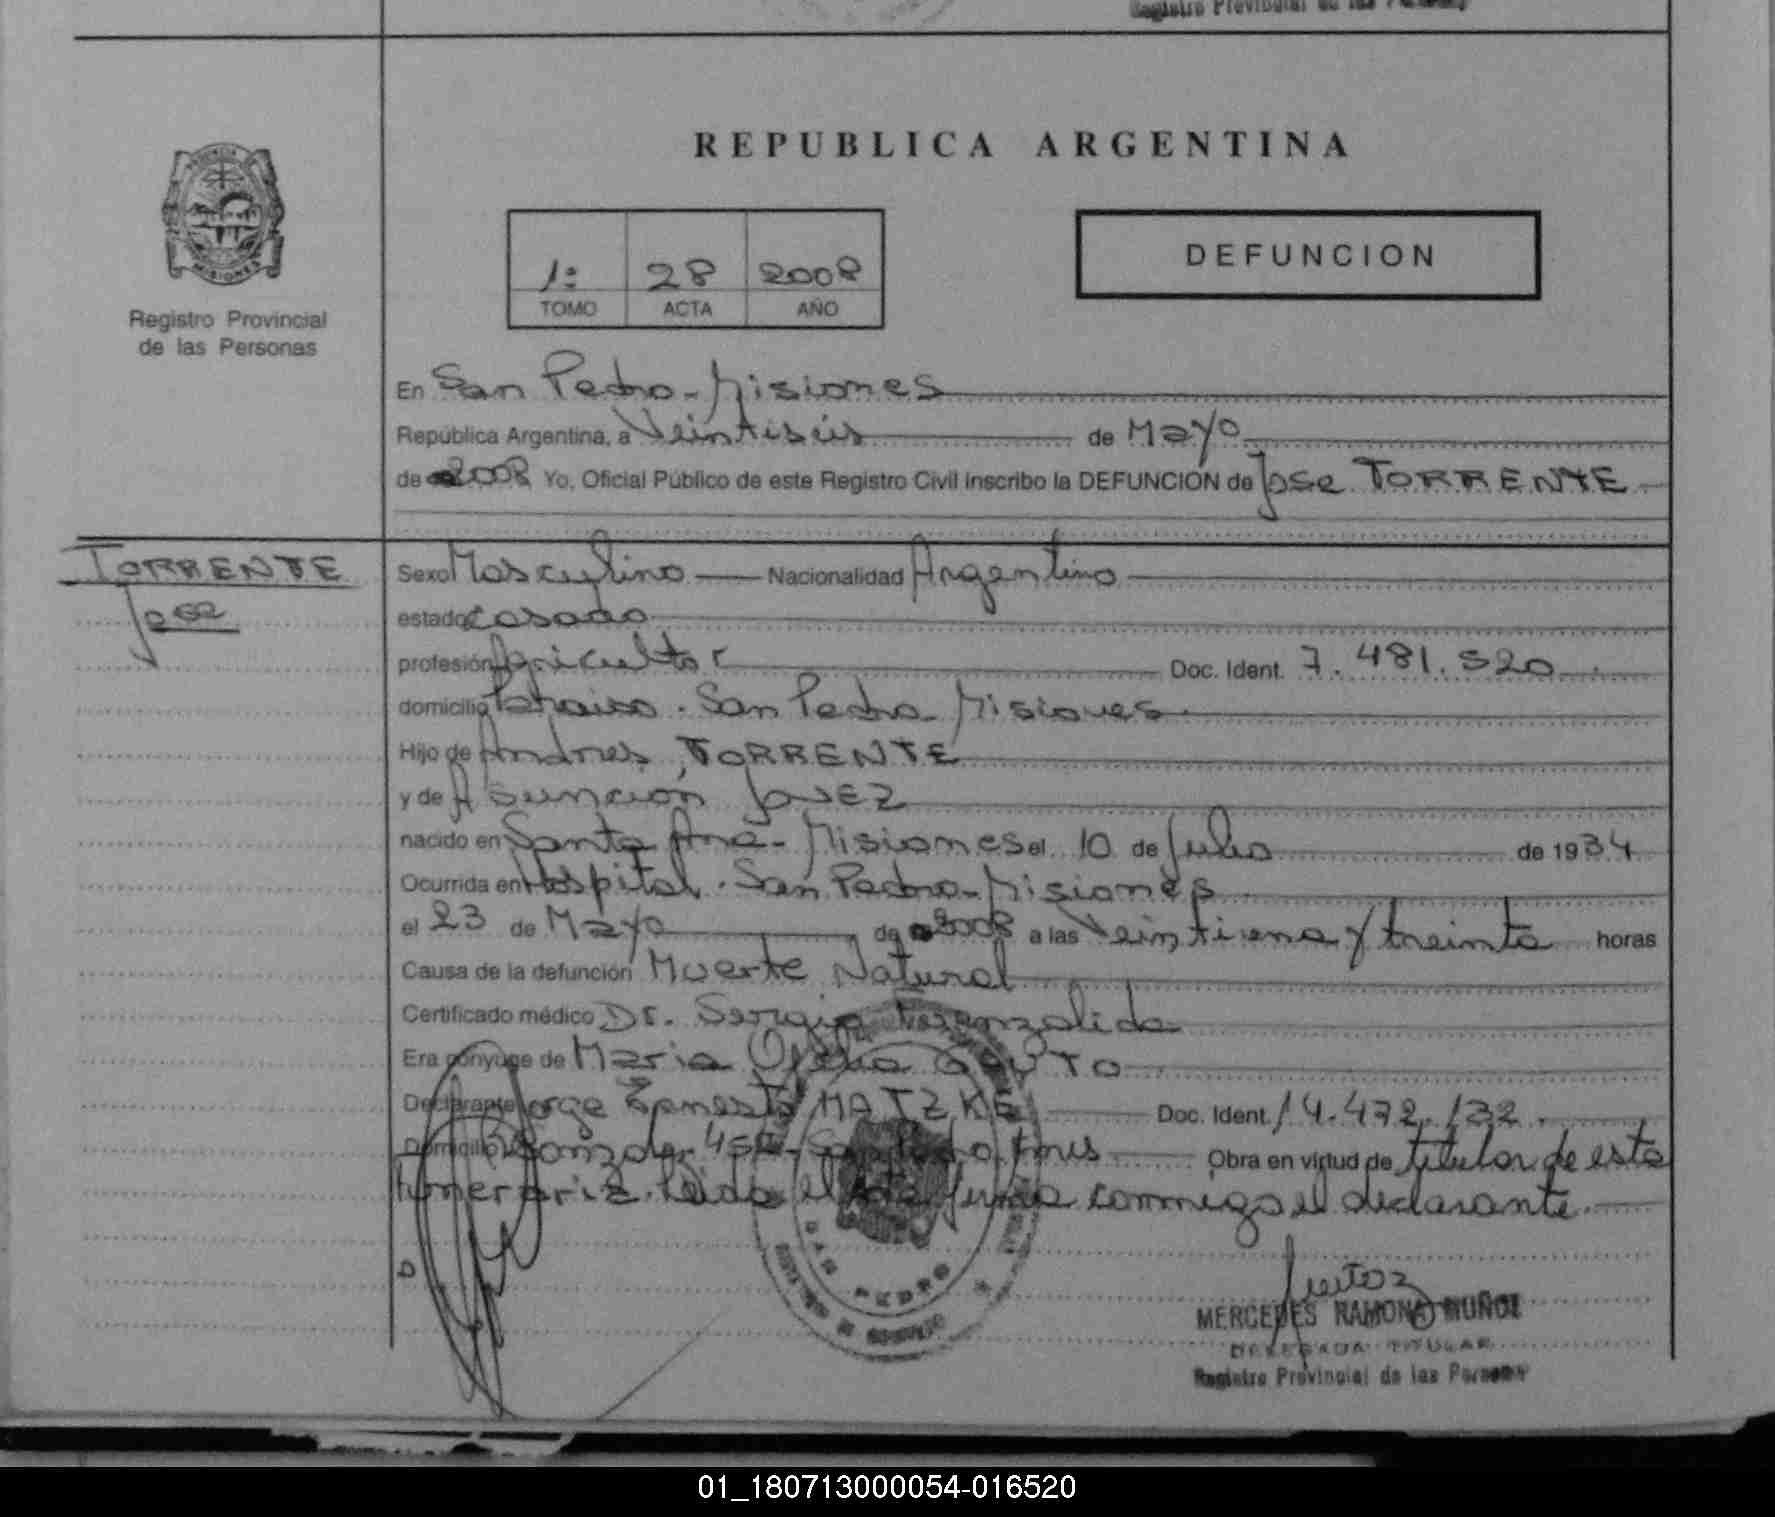 Registro Provincial de las Personas
REPUBLICA ARGENTINA
PROVINCIA DE
MISIONES
Registro Provincial
de las Personas
1º 28 2008
TOMO ACTA AÑO
DEFUNCION
En San Pedro - Misiones
República Argentina, a Veintiseis de Mayo
de 2008 Yo, Oficial Público de este Registro Civil Inscribo la DEFUNCION de Jose TORRENTE
TORRENTE
Jose
Sexo Masculino Nacionalidad Argentino
estado casado
profesión Agricultor Doc. Ident. 7.481.520
domicilio Paraiso - San Pedro - Misiones
Hijo de Andres TORRENTE
y de Asuncion
nacido en Santa Ana - Misiones el 10 de Julio de 1934
Ocurrida en Hospital - San Pedro - Misiones
el 23 de Mayo de 2008 a las Veintiuna y treinta horas
Causa de la defunción Muerte Natural
Certificado médico Dr. Sergio
Era cónyuge de Maria
Declarante Jorge Ernesto MATZKE Doc. Ident. 14.472.132
Domicilio Gonzalez San Pedro Mnes Obra en virtud de titular de esta
funeraria. Leida el Acta firma conmigo el declarante.
SAN PEDRO
MERCEDES RAMONA MUÑOZ
DELEGADA TITULAR
Registro Provincial de las Personas
01_180713000054-016520